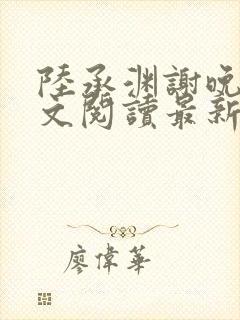 陸承淵謝晚
文閱讀最新
廖偉華